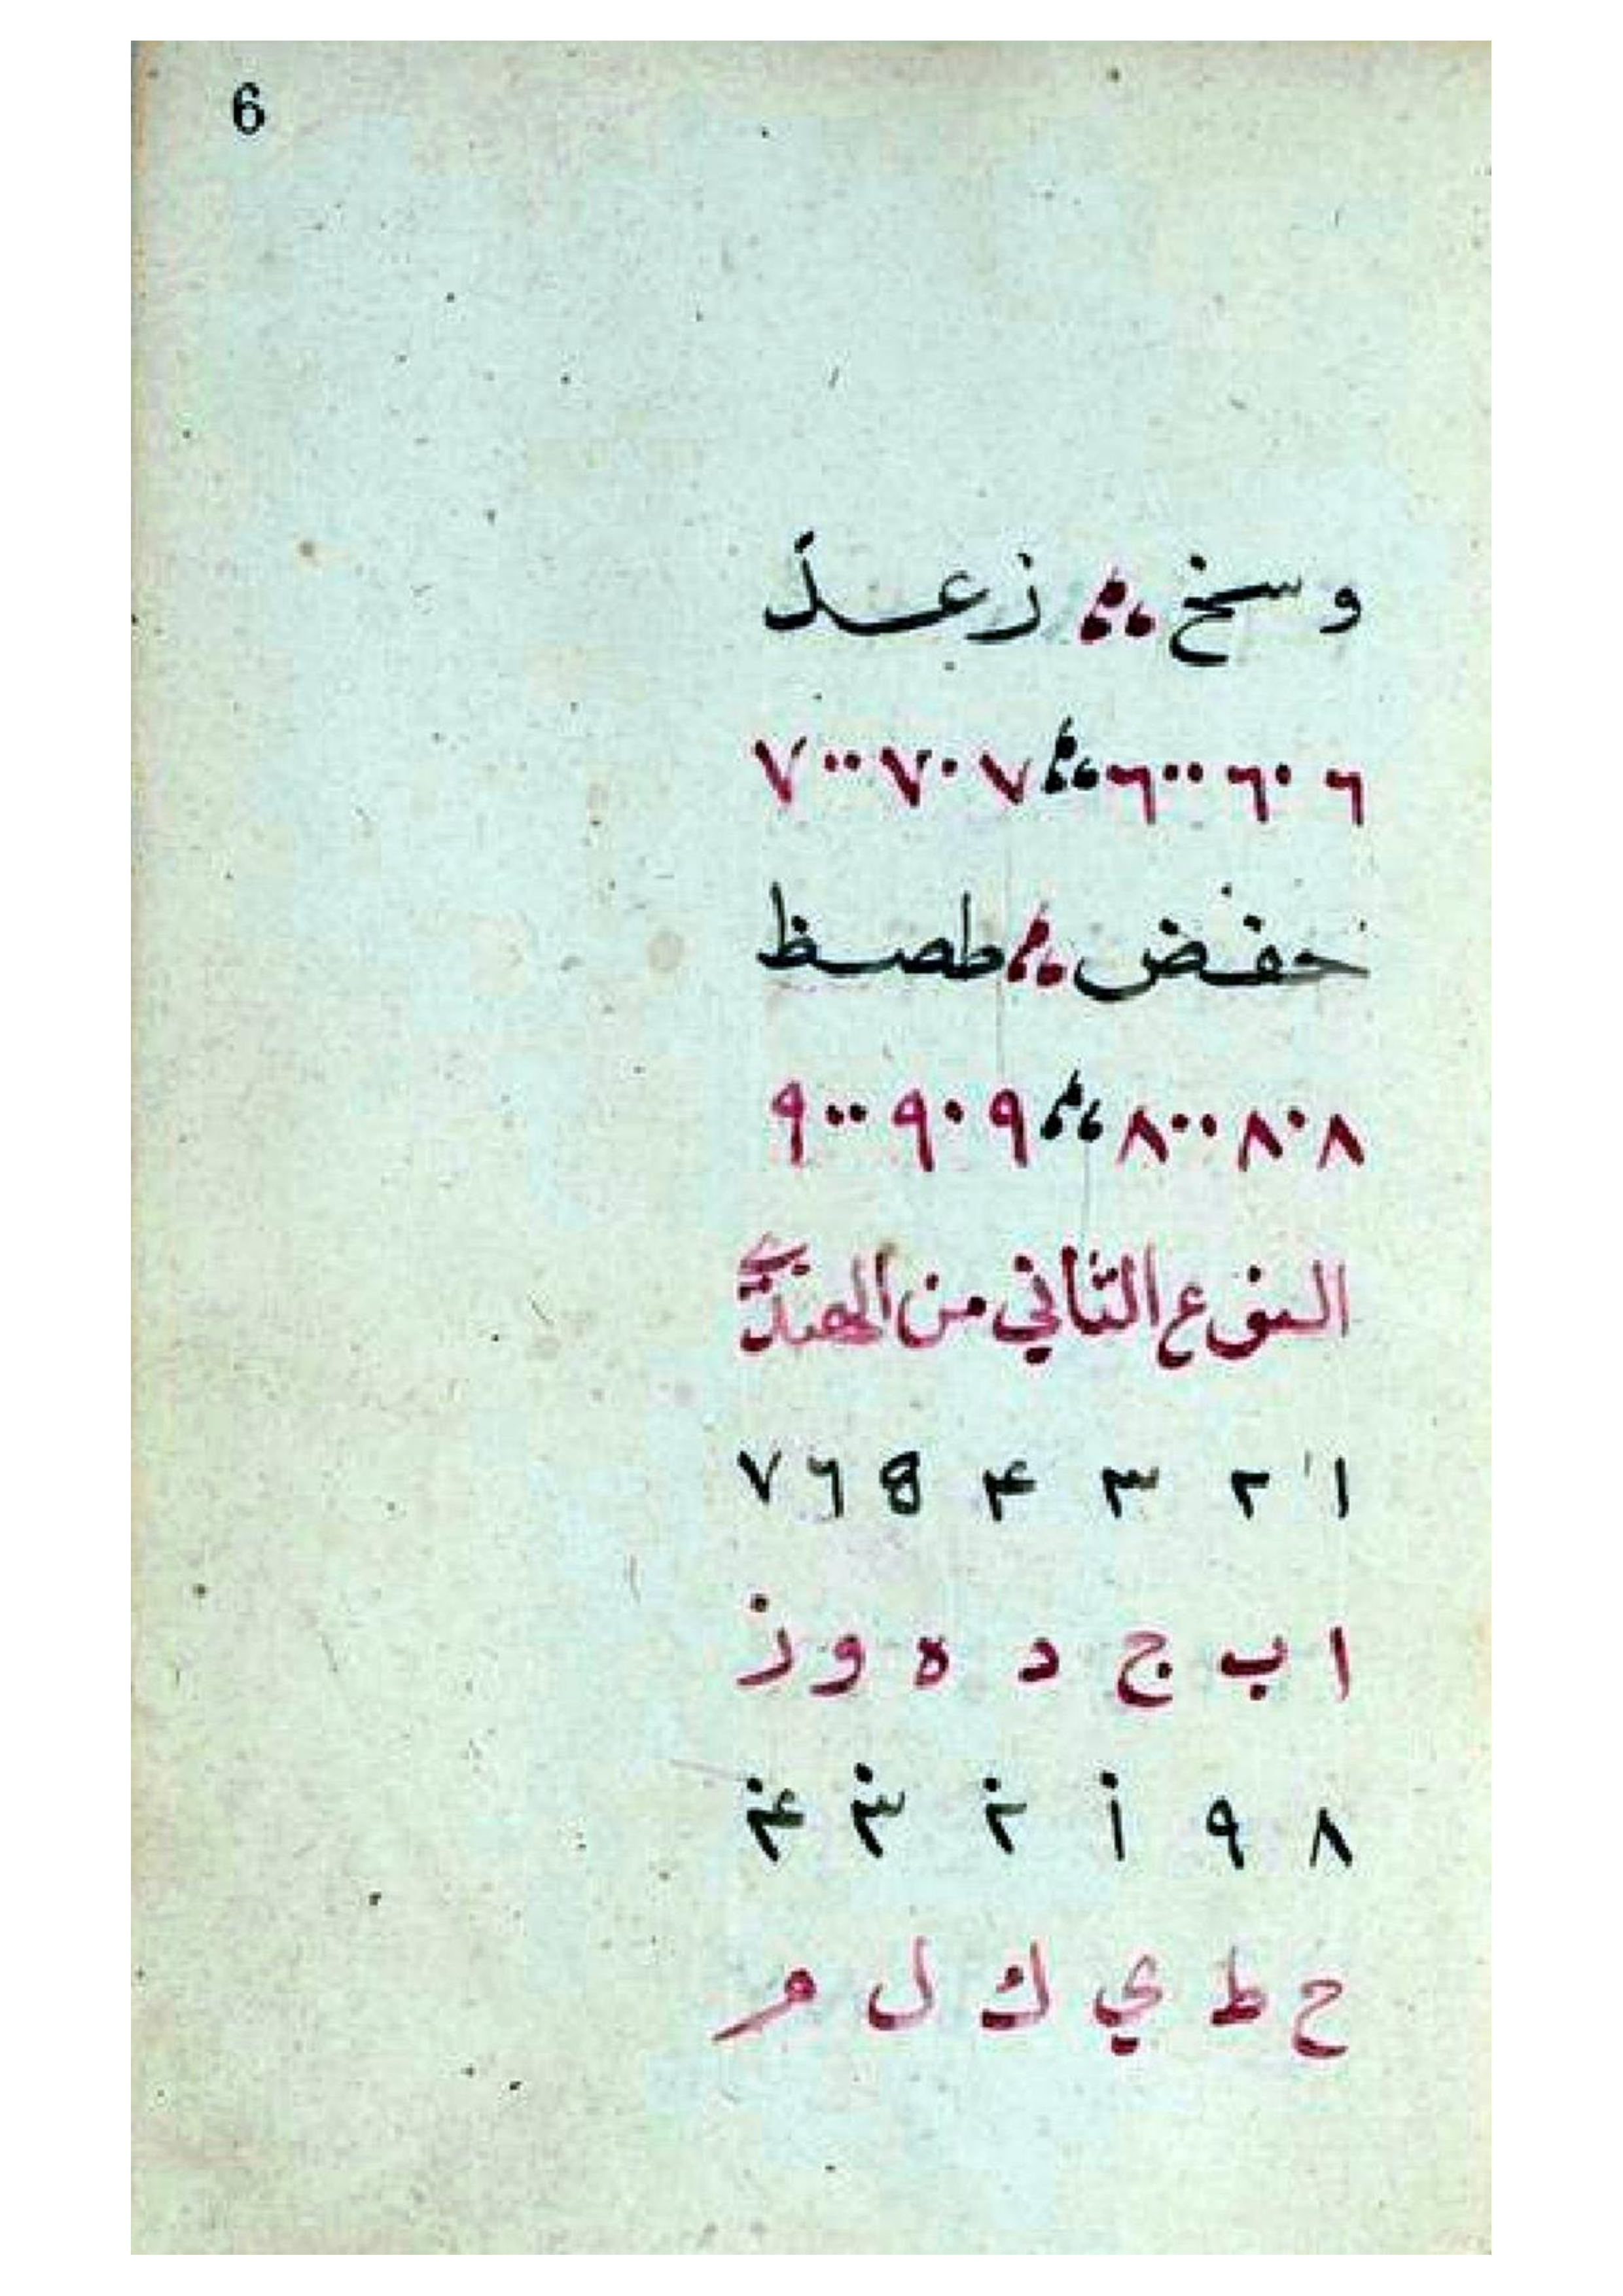 6
وسخ ؞ زعذ
٦ ٦٠ ٦٠٠ ؞ ٧ ٧٠ ٧٠٠
حفض ؞ طصظ
٨ ٨٠ ٨٠٠ ؞ ٩ ٩٠ ٩٠٠
النوع الثاني من الهندي
١ ٢ ٣ ۴ ٥ ٦ ٧
ا ب ج د ه و ز
٨ ٩ ١̇ ٢̇ ٣̇ ۴̇
ح ط ي ك ل م